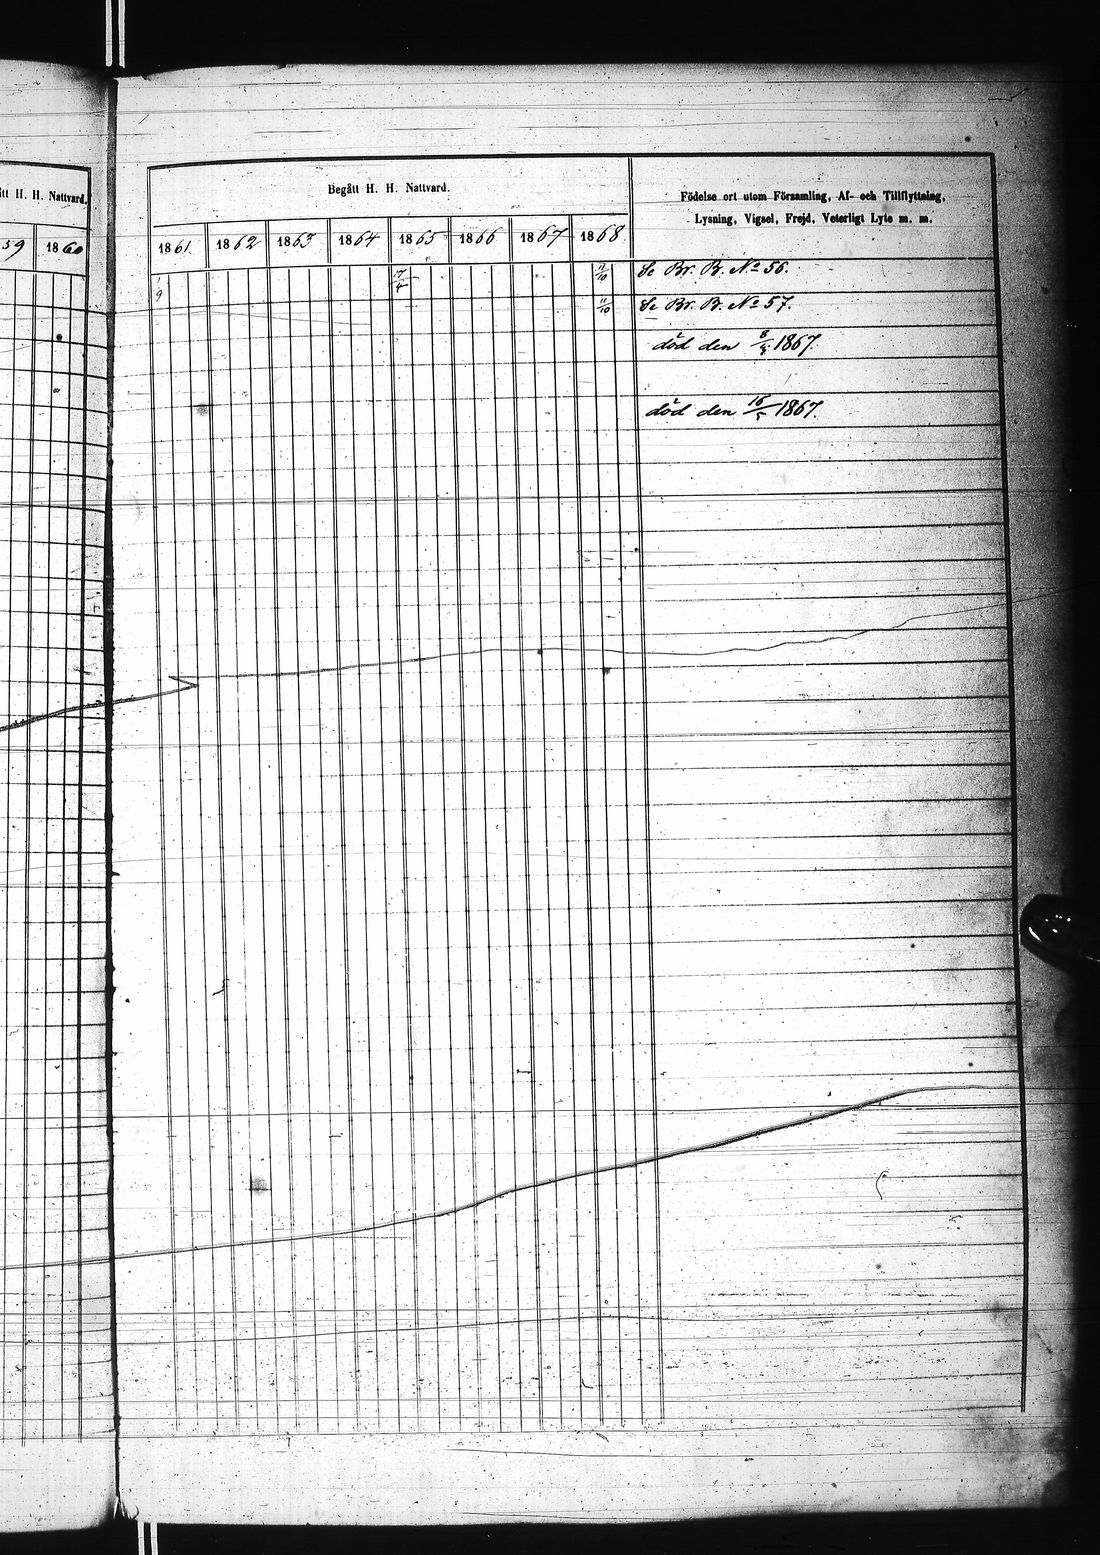 tt H. H. Nattvard.
59 1860
Begått H. H. Nattvard.
Födelse ort utom Församling, Af- och Tillflyttning,
Lysning, Vigsel, Frejd, Veterligt Lyte m. m.
1861 1862 1863 1864 1865 1866 1867 1868
1/9 17/4 11/10 Se Br. B. No 56.
11/10 Se Br. B. No 57.
död den 8/4 1867.
död den 16/5 1867.